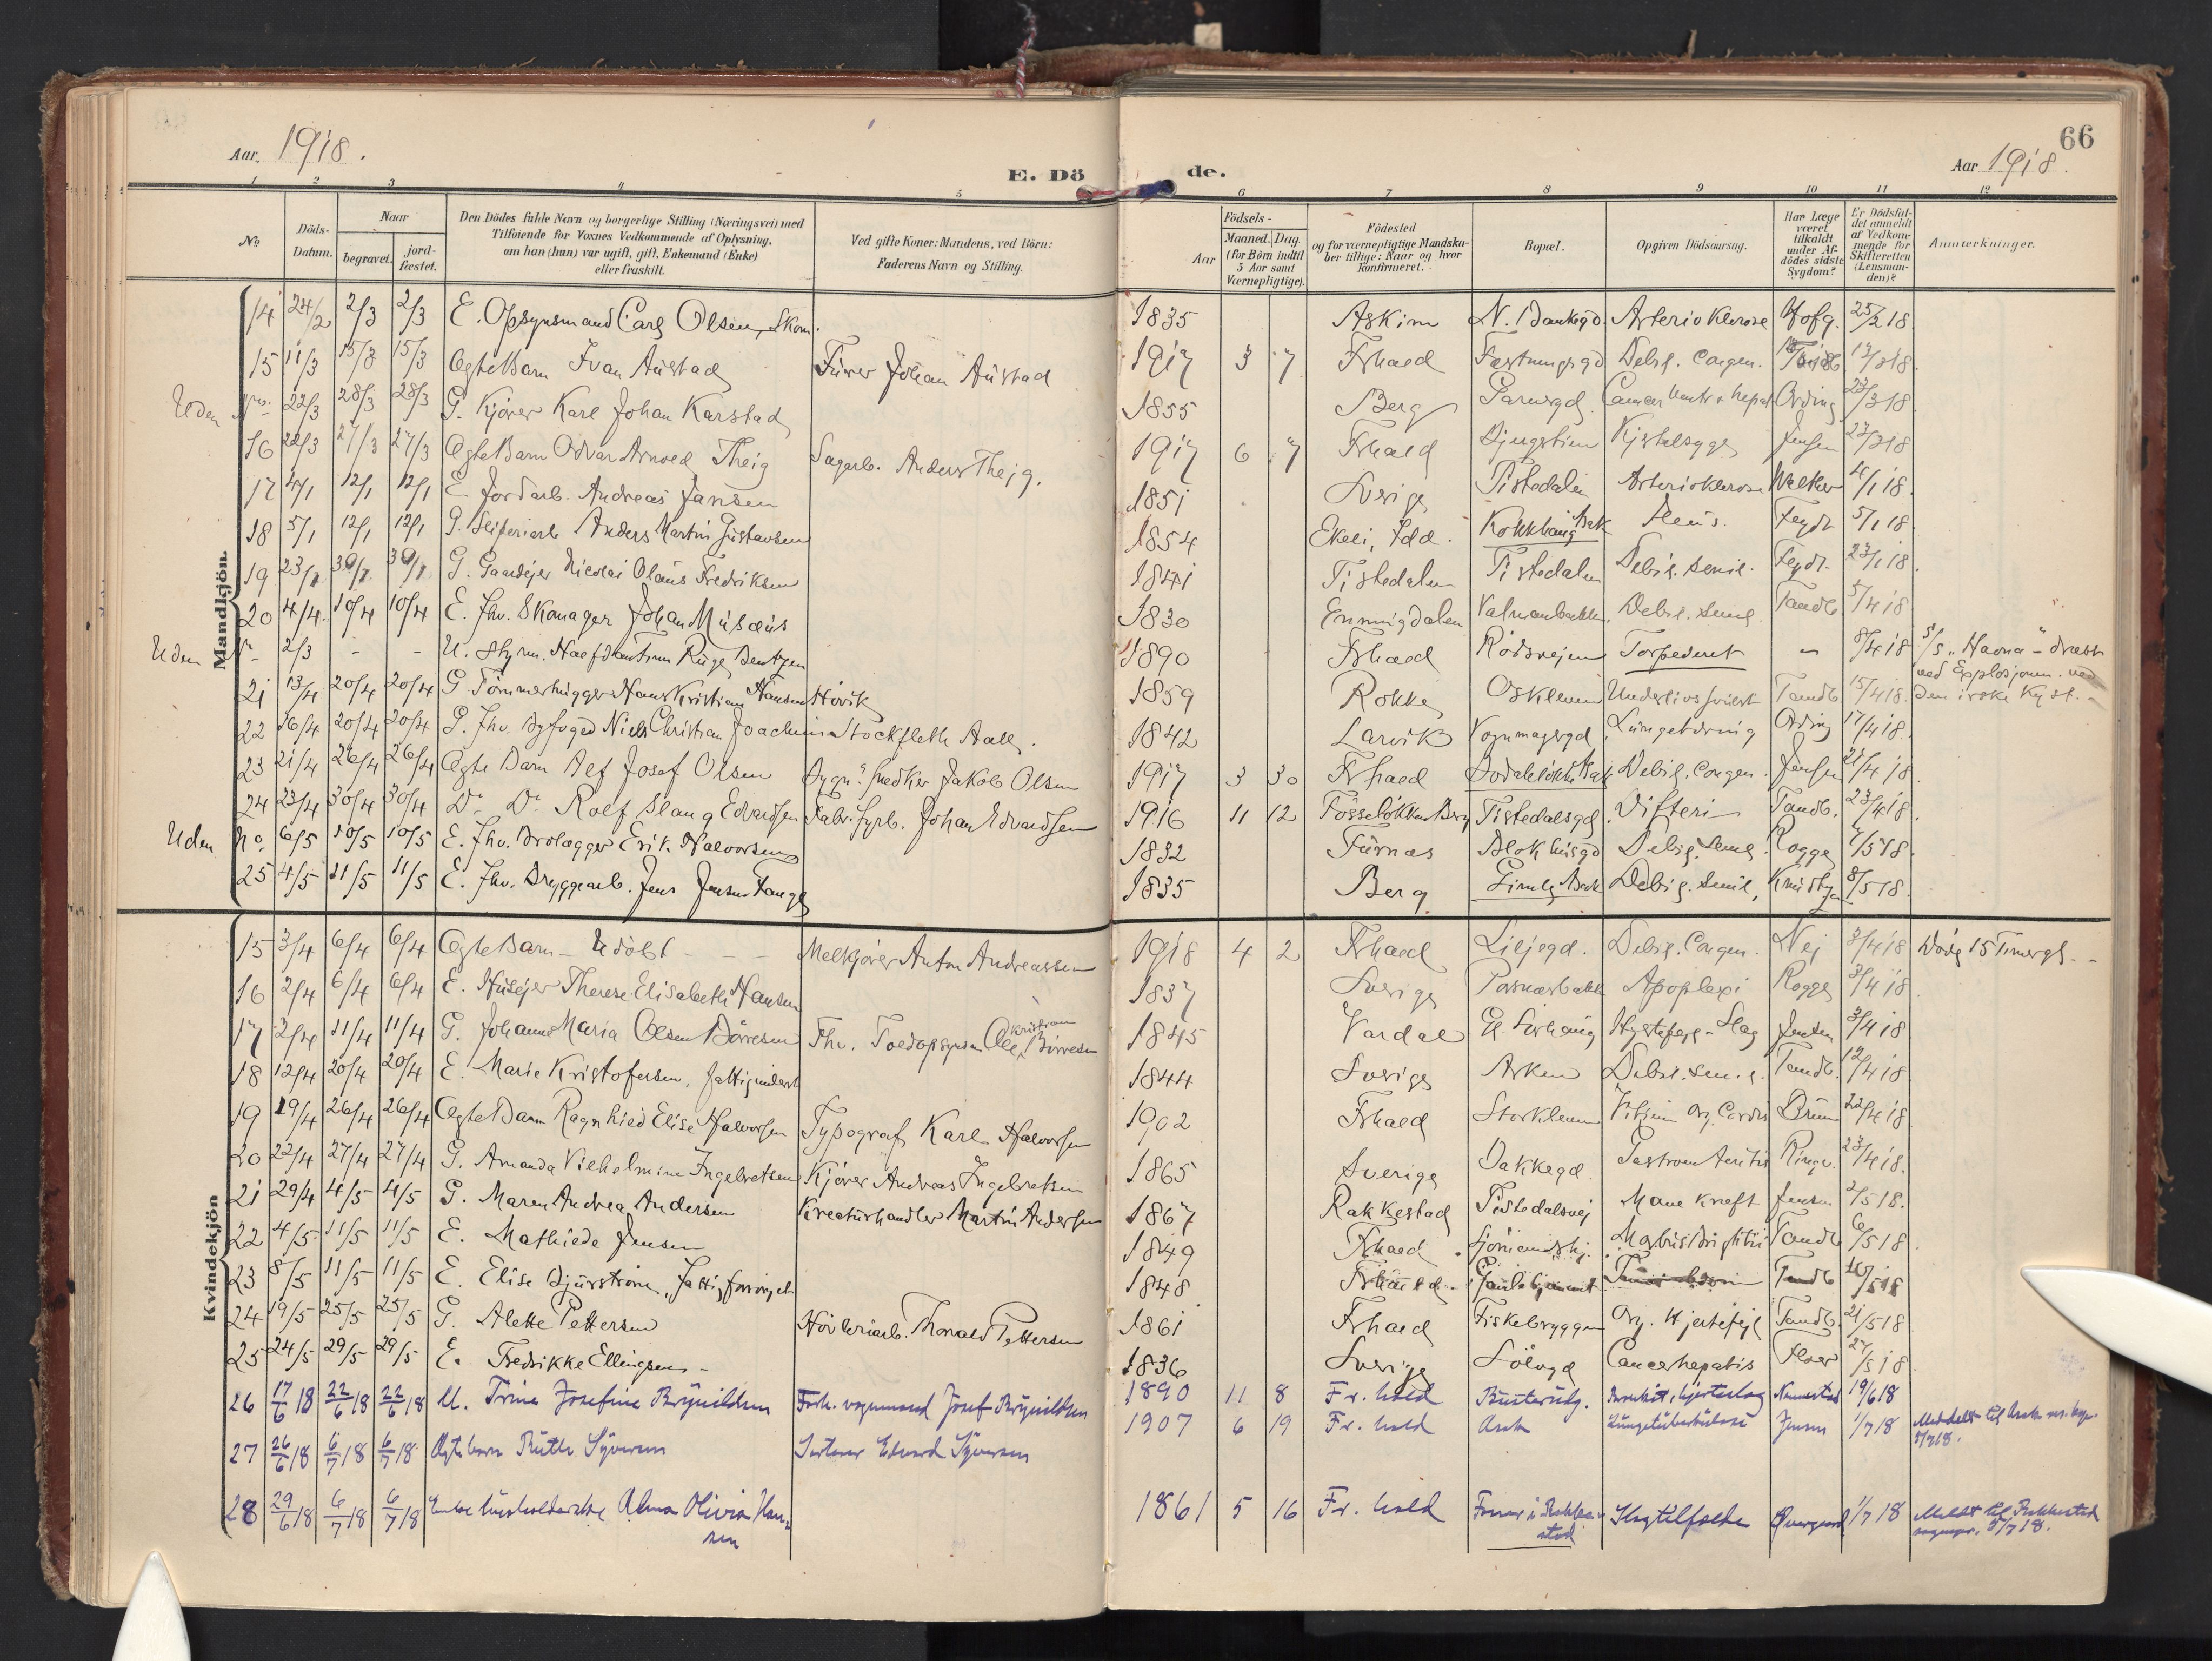 Aar. 1918.
E. Dö de.
Aar 1918.
66
1 2 3 4 5 6 7 8 9 10 11 12
No
Döds-Datum.
Naar
begravet.
jord-fæstet.
Den Dödes fulde Navn og borgerlige Stilling (Næringsvei) med
Tilföiende for Voxnes Vedkommende af Oplysning,
om han (hun) var ugift, gift, Enkemand (Enke)
eller fraskilt.
Ved gifte Koner: Mandens, ved Börn:
Faderens Navn og Stilling.
Födsels-
Aar
Maaned. Dag
(for Börn indtil
5 Aar samt
Værnepligtige).
Födested
og for værnepligtige Mandska-
ber tillige: Naar og hvor
konfirmeret.
Bopæl.
Opgiven Dödsaarsag.
Har Læge
været
tilkaldt
under Af-
dödes sidste
Sygdom?
Er Dödsfal-
det anmeldt
af Vedkom-
mende for
Skifteretten
(Lensman-
den)?
Anmærkninger.
Mandkjön.
14 24/2 2/3 2/3 E. Opsynsmand Carl Olsen, 1835 Askim N. Bankegd. Arterioklerose Hofg. 25/2 18.
15 11/3 15/3 15/3 Ægte Barn Ivan Austad Furer Johan Austad 1917 3 7 Frhald Fæstningsgd Debil. congen. 12/3 18
Uden No. 22/3 28/3 28/3 G. Kjører Karl Johan Karstad 1855 Berg Garvergd. Cancer Ording 23/3 18
16 22/3 27/3 27/3 Ægte Barn Odvar Arnold Theig Sagarb. Anders Theig. 1917 6 7 Frhald Jensen 23/3 18
17 4/1 12/1 12/1 E. Jordarb. Andreas Jansen 1851 Sverige Tistedalen Arterioklerose Walker 4/1 18.
18 5/1 12/1 12/1 G. Sliperiarb. Anders Martin Gustavsen 1854 Ekeli, Idd. Kokkhaug Ask Feydt 5/1 18.
19 23/1 30/1 30/1 G. Gaardejer Nicolai Olaus Fredriksen 1841 Tistedalen Tistedalen Debil. senil. Feydt. 23/1 18.
20 4/4. 10/4 10/4 E. Fhv. Skomager Johan Musæus 1830 Enningdalen Debil. senil Tandb. 5/4 18
Uden N. 2/3 - - U. Styrm. Bentzen 1890 Frhald Rödsvejen Torpederet - 8/4 18 S/S "Havna" - dræbt
ved Explosjonen ved
den irske Kyst. -
21 13/4 20/4 20/4 G. Tömmerhugger Hans Kristian Hansen Hövik 1859 Rokke Oskleven Underlivssvulst Tandb. 15/4 18.
22 16/4 20/4 20/4 G. Fhv. Byfoged Niels Christian Joachim Stockfleth Aall. 1842 Larvik Vognmagergd. Lungetæring Ording 17/4 18.
23 21/4 26/4 26/4 Ægte Barn Alf Josef Olsen Snedker Jakob Olsen 1917 3 30 Frhald Debil. congen. Jensen 22/4 18
24 23/4 30/4 30/4 Do Do Rolf Slang Edvardsen Fabr. fyrb. Johan Edvardsen 1916 11 12 Fosselökken Berg Tistedalsgd. Difteri Tandb. 23/4 18.
Uden No. 6/5 10/5 10/5 E. Fhv. Brolægger Erik Halvorsen 1832 Furnæs Blokhusgd Debil. senil. Rogge 7/5 18.
25 4/5 11/5 11/5 E. Fhv. Bryggearb. Jens Jensen Tange 1835 Berg Ask Debil. senil, 8/5 18.
Kvindekjön
15 3/4 6/4 6/4 Ægte Barn - Udöbt - - - Melkjører Anton Andreassen 1918 4 2 Frhald Liljegd. Debil. Congen. Nej 3/4 18 Döde 15 Timergl. -
16 2/4 6/4 6/4 E. Husejer Therese Elisabeth Hansen 1837 Sverige Apoplexi Rogge 3/4 18
17 2/4 11/4 11/4 G. Johanne Maria Olsen Börresen Fhv. Toldopsynsm. Ole Kristian Börresen 1845 Vardal Slag Jensen 3/4 18
18 12/4 20/4 20/4 E. Marie Kristofersen, 1844 Sverige Asken Debil. sen. Tandb. 12/4 18
19 19/4 26/4 26/4 Ægte Barn Ragnhild Elise Halvorsen Typograf Karl Halvorsen 1902 Frhald Storkleven Vitium org. Cordis Bruun 22/4 18
20 22/4 27/4 27/4 G. Amanda Vilhelmine Ingebretsen Kjører Andreas Ingebretsen 1865 Sverige Bakkegd. 23/4 18.
21 29/4 4/5 4/5 G. Maren Andrea Andersen Kreaturhandler Martin Andersen 1867 Rakkestad Tistedalsvej Mave kræft Jensen 2/5 18.
22 4/5 11/5 11/5 E. Mathilde Jensen 1849 Frhald. Morbus Brightii Tandb 6/5 18
23 8/5 11/5 11/5 E. Elise Bjurström, Fattigforsörget 1848 Frhald. Gamlehjemmet Tandb 10/5 18
24 19/5 25/5 25/5 G. Alette Pettersen Hövleriarb. Thorvald Pettersen 1861 Frhald Fiskebryggen Org. Hjertefejl Tandb. 21/5 18
25 24/5 29/5 29/5 E. Fredrikke Ellingsen - 1836 Sverige Sölvgd Cancer hepatis 27/5 18
26 17/6 18 22/6 18 22/6 18 U. Trine Josefine Brynildsen Forh. vognmand Josef Brynildsen 1890 11 8 Fr. hald hjerteslag 19/6 18
27 26/6 18 6/7 18 6/7 18 Ægte barn Ruth Syversen Edvard Syversen 1907 6 19 Fr. hald Ask Lungetuberkulose Jensen 1/7 18 Meddelt til Ask
5/7 18.
28 29/6 18 6/7 18 6/7 18 Enke husholderske Alma Olivia Han-
sen 1861 5 16 Fr. hald i Rakke-
stad Slagtilfælde 1/7 18 Meldt til Rakkestad
sognepr. 5/7 18.